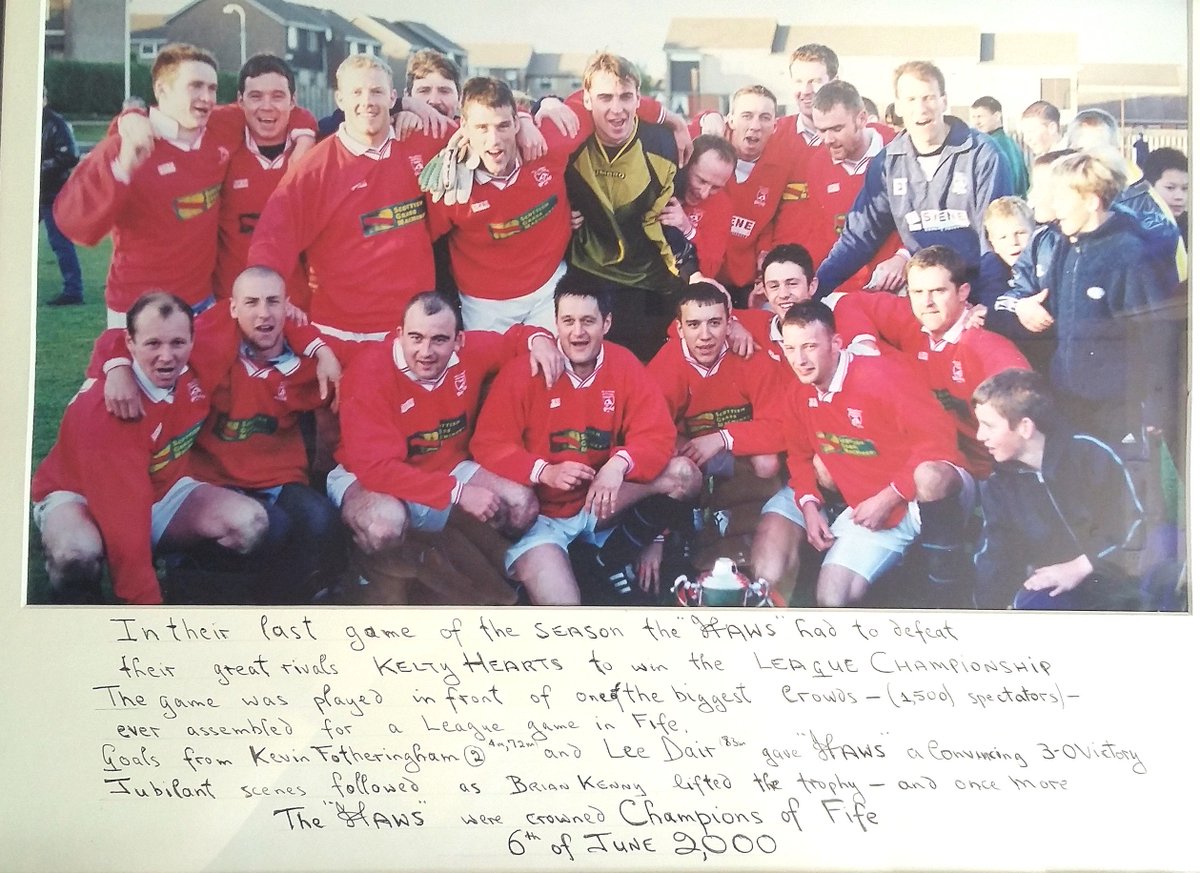 UMBRO
SCOTTISH
GRASS
MACHINERY
STENE
STENE
In their last game of the SEASON the "HAWS" had to defeat
their great rivals KELTY HEARTS to win the LEAGUE CHAMPIONSHIP
The game was played in front of one of the biggest Crowds – (1,500) spectators) –
ever assembled for a League game in Fife.
Goals from Kevin Fotheringham ② 4m,72m and Lee Dair 83m gave "HAWS" a Convincing 3-0 Victory
Jubilant scenes followed as BRIAN KENNY lifted the trophy – and once more
The "HAWS" were crowned Champions of Fife
6th of JUNE 2,000